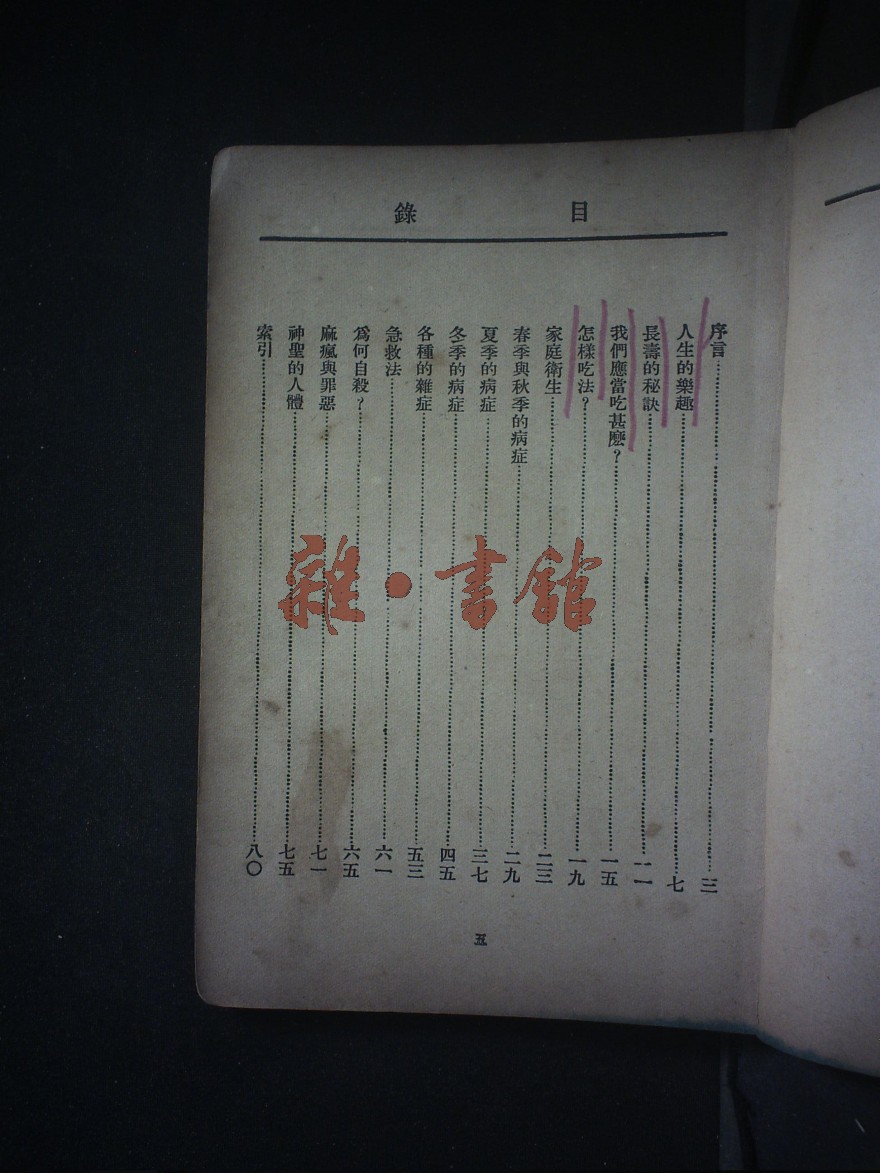 目錄
序言 三
人生的樂趣 七
長壽的秘訣 一一
我們應當吃甚麼？ 一五
怎樣吃法？ 一九
家庭衛生 二三
春季與秋季的病症 二九
夏季的病症 三七
冬季的病症 四五
各種的雜症 五三
急救法 六一
爲何自殺？ 六五
麻瘋與罪惡 七一
神聖的人體 七五
索引 八〇
五
雜・書館